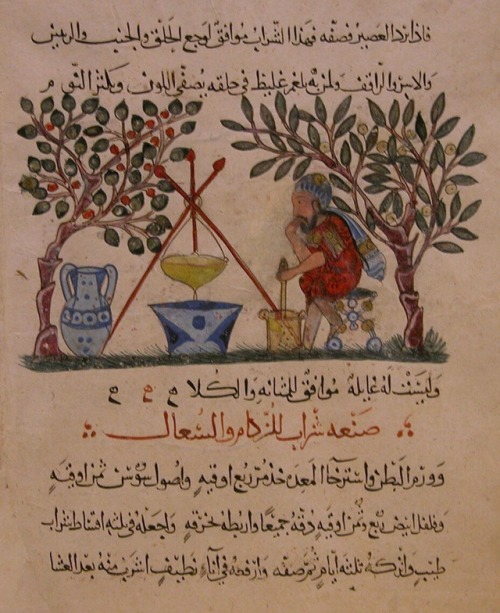 فاذا برد العصير فصفه فهذا الشراب موافق لوجع الحلق والجنب والرئتين
ولمن به بلغم غليظ في حلقه يصفي اللون ويكثر النوم
وليست له غايلة موافق للمثانه والكلا ح ح ح
صنعه شراب للزكام والسعال
وورم البطن واسترخا المعده خذ مر ربع اوقيه واصول سوسن ثمن اوقيه
وفلفل ابيض ربع وثمن اوقيه دقه جميعا واربطه بخرقه واجعله في ثلثه اقساط شراب
طيب واتركه ثلثه ايام ثم صفه وارفعه في انآء نظيف اشرب منه بعد العشا